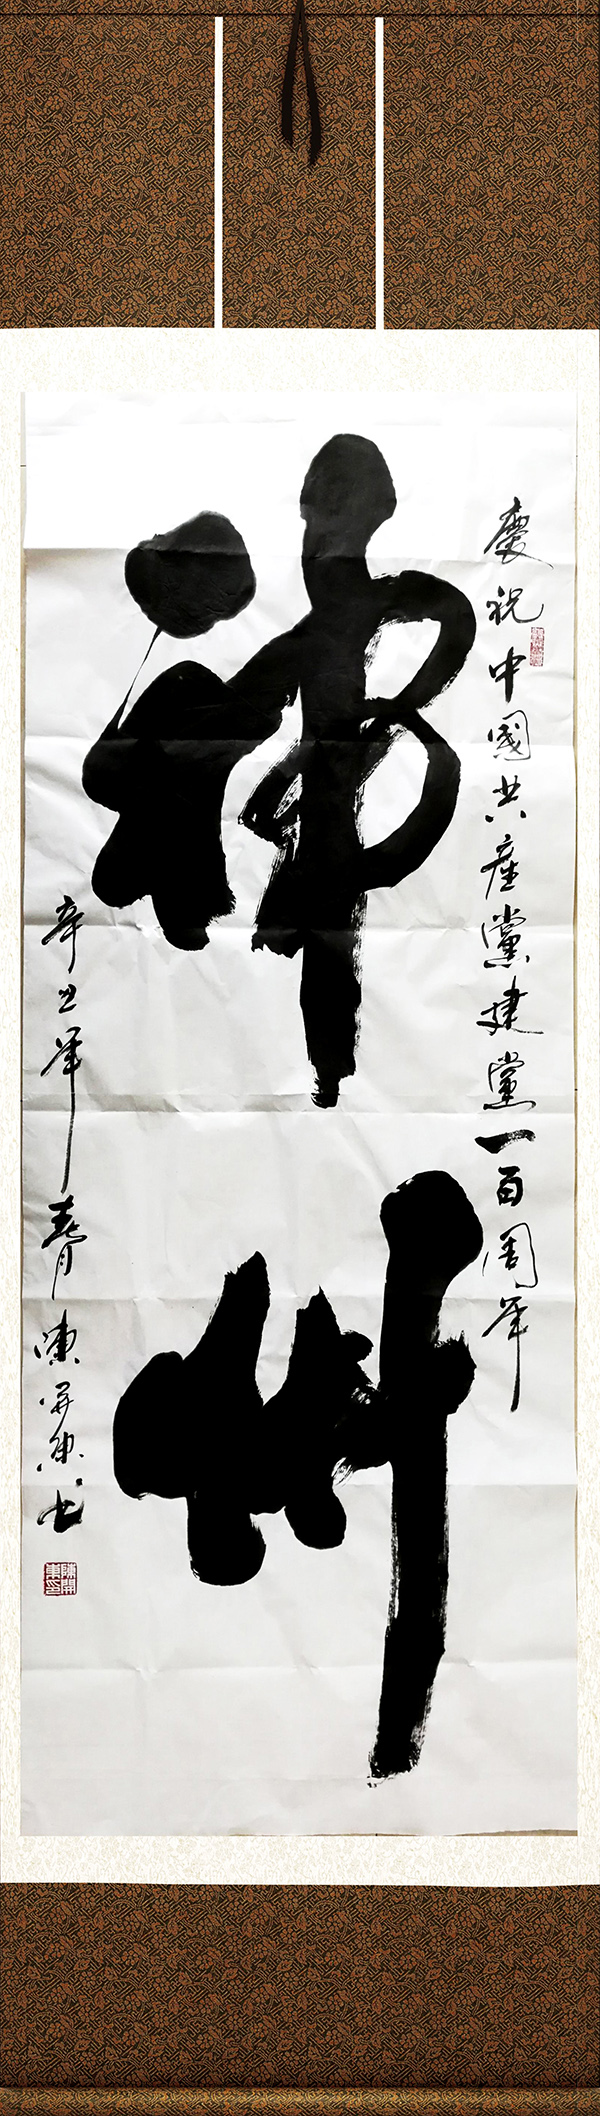 慶祝中國共產黨建黨一百周年
神州
辛丑年春月陳開東书
陳開東印